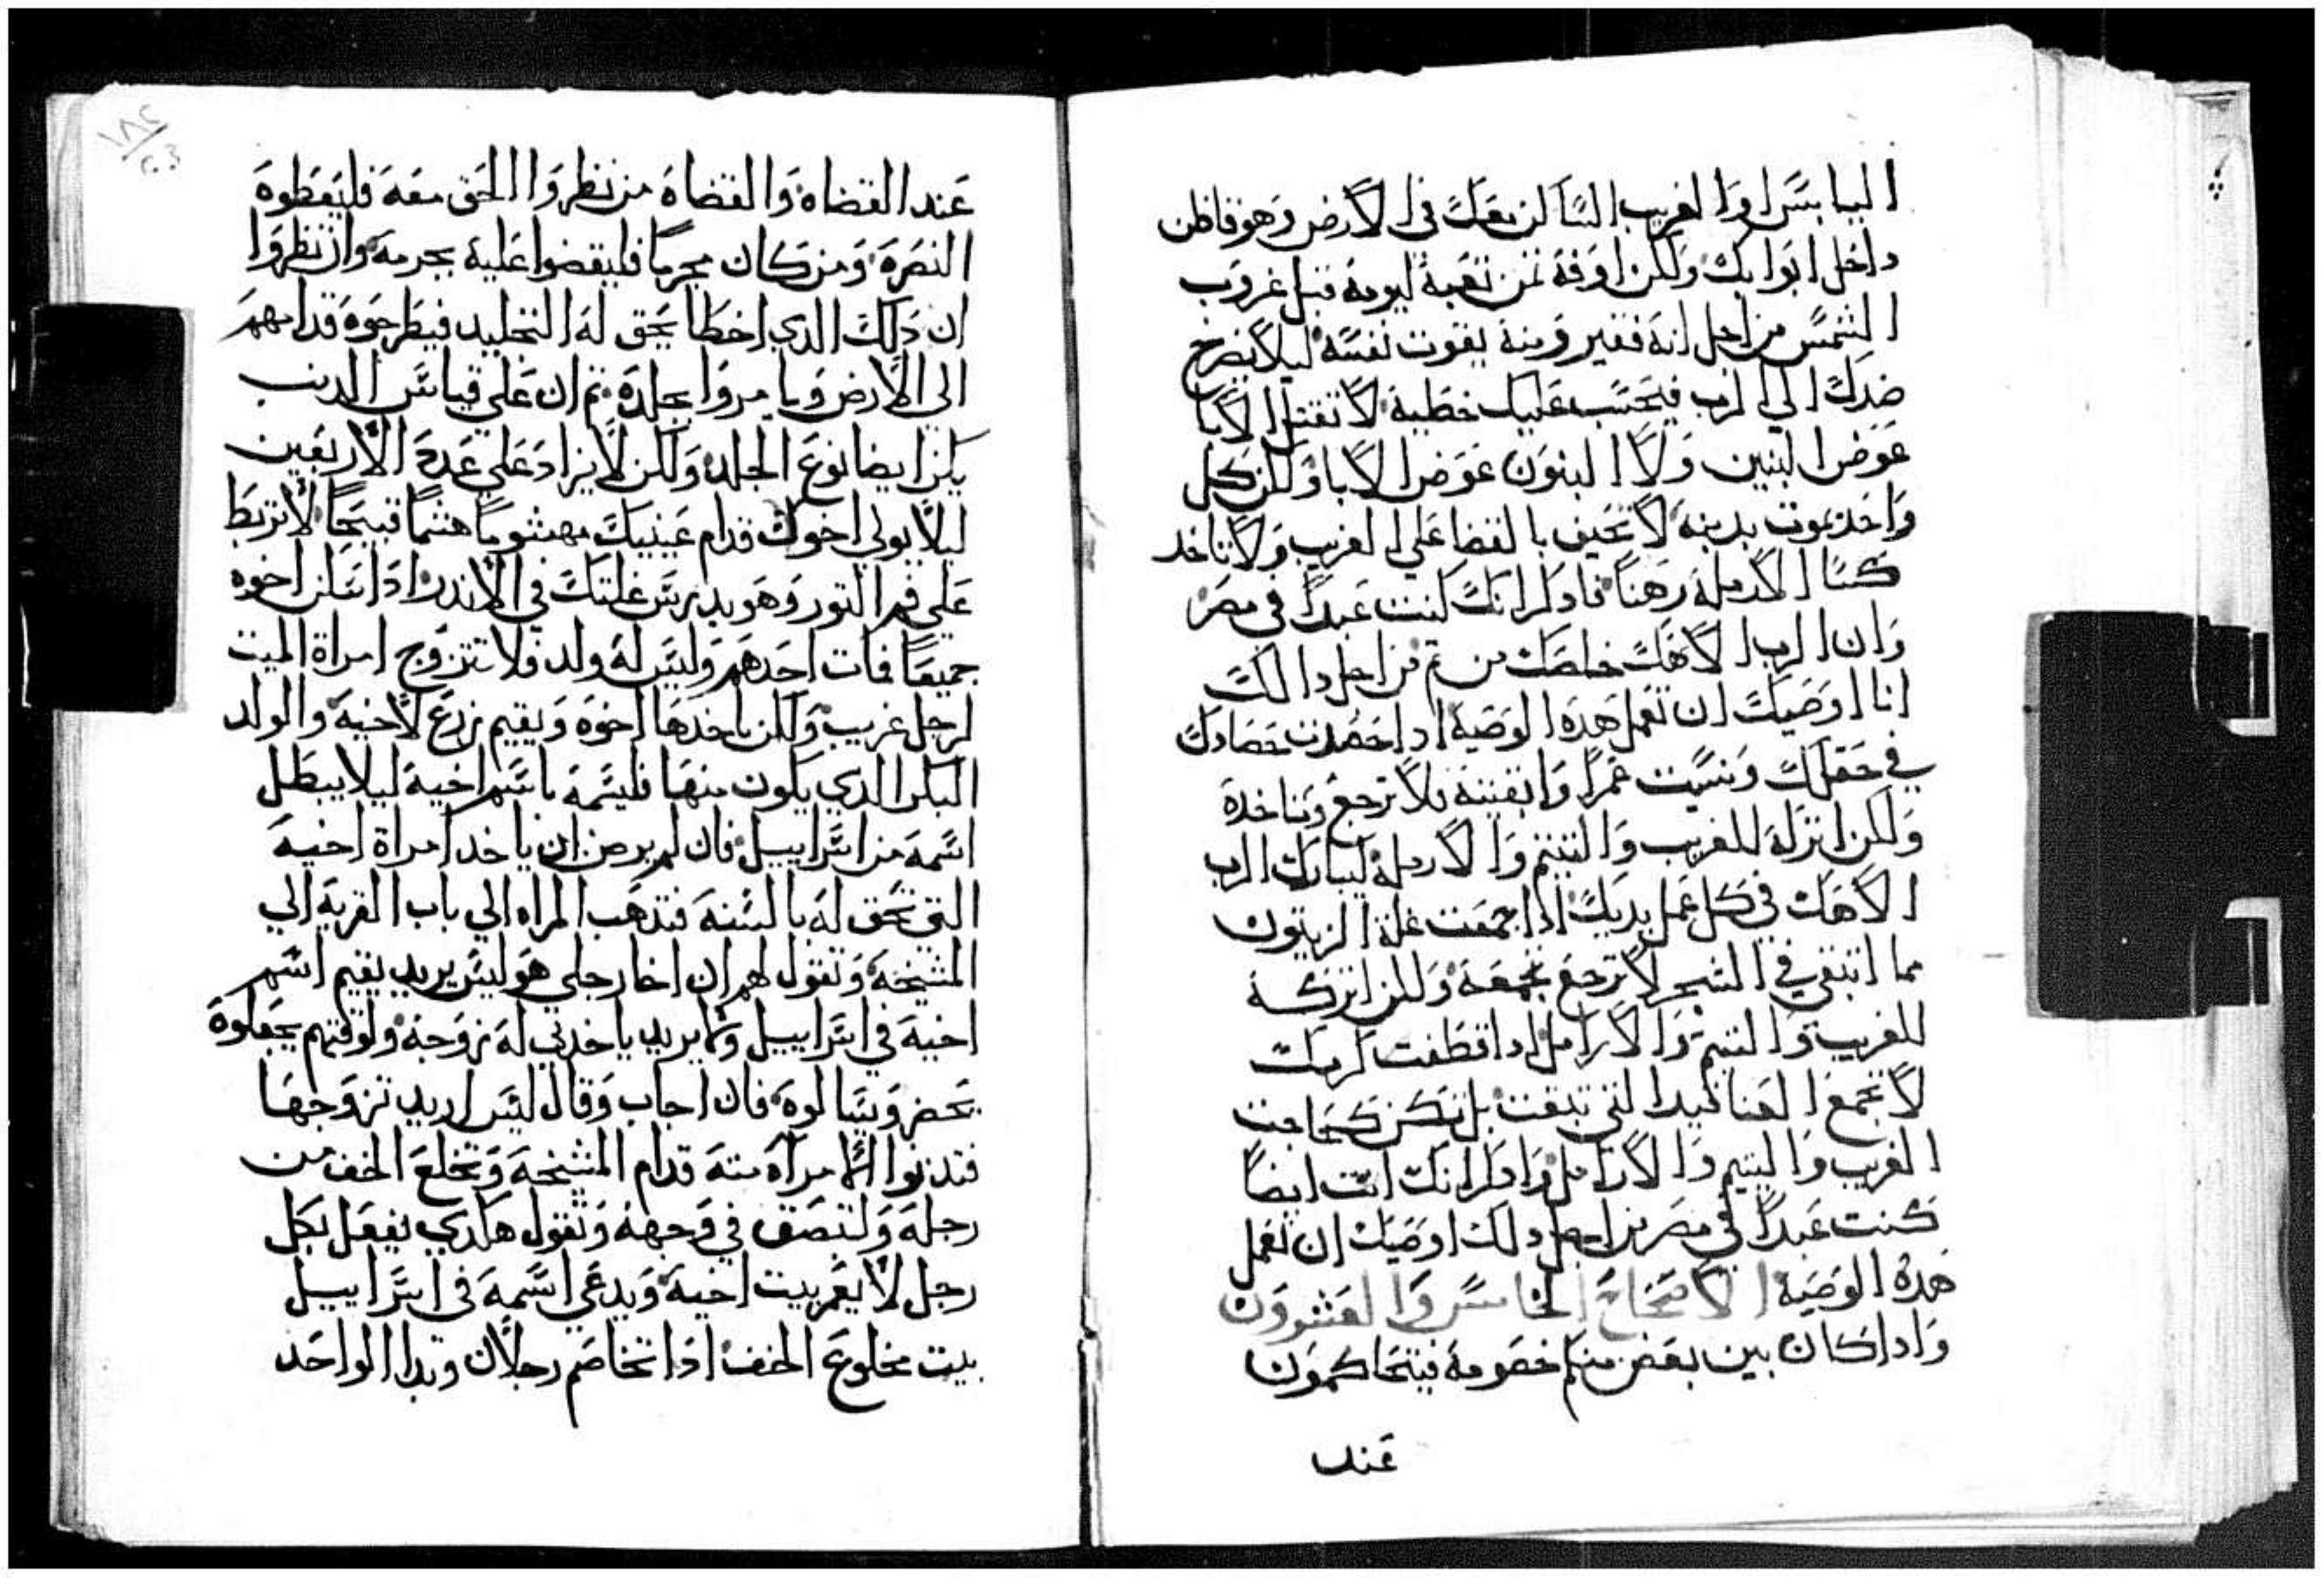 اليابس او الغريب الساكن معك في الارض وهو قاطن
داخل ابوابك ولكن اوفه ثمن تعبه ليومه قبل غروب
الشمس من اجل انه فقير ومنه يقوت نفسه ليلا يصرخ
ضدك الي الرب فيحسب عليك خطية لا تقتل الابا
عوض البنين ولا البنون عوض الابا ولكن كل
واحد يموت بدينه لا تحيف بالقضا علي الغريب ولا تاخد
كسا الارملة رهنا فادكر انك كنت عبدا في مصر
وان الرب الاهك خلصك من ثم من اجل دالك
انا اوصيك ان تعمل هده الوصية ادا حصدت حصادك
في حقلك ونسيت غمرا وابقيته فلا ترجع وتاخده
ولكن اتركه للغريب واليتيم والارملة ليبارك الرب
الاهك في كل عمل يديك ادا جمعت غلة الزيتون
مما اتبقي في الشجر لا ترجع تجمعه ولكن اتركه
للغريب واليتيم والارامل ادا قطفت كرمك
لا تجمع العناقيد التي تبقت بل تكن كحاجت
الغريب واليتيم والارامل وادكر انك انت ايضا
كنت عبدا في مصر من اجل دلك اوصيك ان تعمل
هده الوصية الاصحاح الخامس والعشرون
وادا كان بين بعض منكم خصومة فيتحاكمون
عند
١٨٢
٢٠٣
عند القضاه والقضاة من نظروا الحق معه فليعطوه
النصرة ومن كان مجرما فليقضوا علية بجرمه وان نظروا
ان دلك الدي اخطا يحق له التجليد فيطرحوه قدامهم
الي الارض ويامروا بجلده ثم ان علي قياس الدنب
يكن ايضا نوع الجلد ولكن لا يزاد علي عدة الاربعين
ليلا يولي اخوك قدام عينيك مهشوما هشما قبيحا لا تربط
علي فم التور وهو يدرس غلتك في الاندر ادا سكن اخوه
جميعا فمات احدهم وليس له ولد فلا تتزوج امراة الميت
لرجل غريب ولكن ياخدها اخوه ويقيم زرع لاخيه والولد
البكر الدي يكون منها فليسمه باسم اخيه ليلا يبطل
اسمه من اسراييل فان لم يرض ان ياخد امراة اخيه
التي تحق له بالسنه فتدهب المراه الي باب القرية الي
المشيخه وتقول لهم ان اخا رجلي هو ليس يريد يقيم اسم
اخيه في اسراييل ولا يريد ياخدني له زوجة ولوقتهم يجعلوه
يحضر ويسالوه فان اجاب وقال ليس اريد تزوجها
فتدنوا الامراة منه قدام المشيخه وتخلع الخف من
رجله ولتبصق في وجهه وتقول هكدي يفعل بكل
رجل لا يعمر بيت اخيه ويدعي اسمه في اسراييل
بيت مخلوع الخف ادا تخاصم رجلان وبدا الواحد